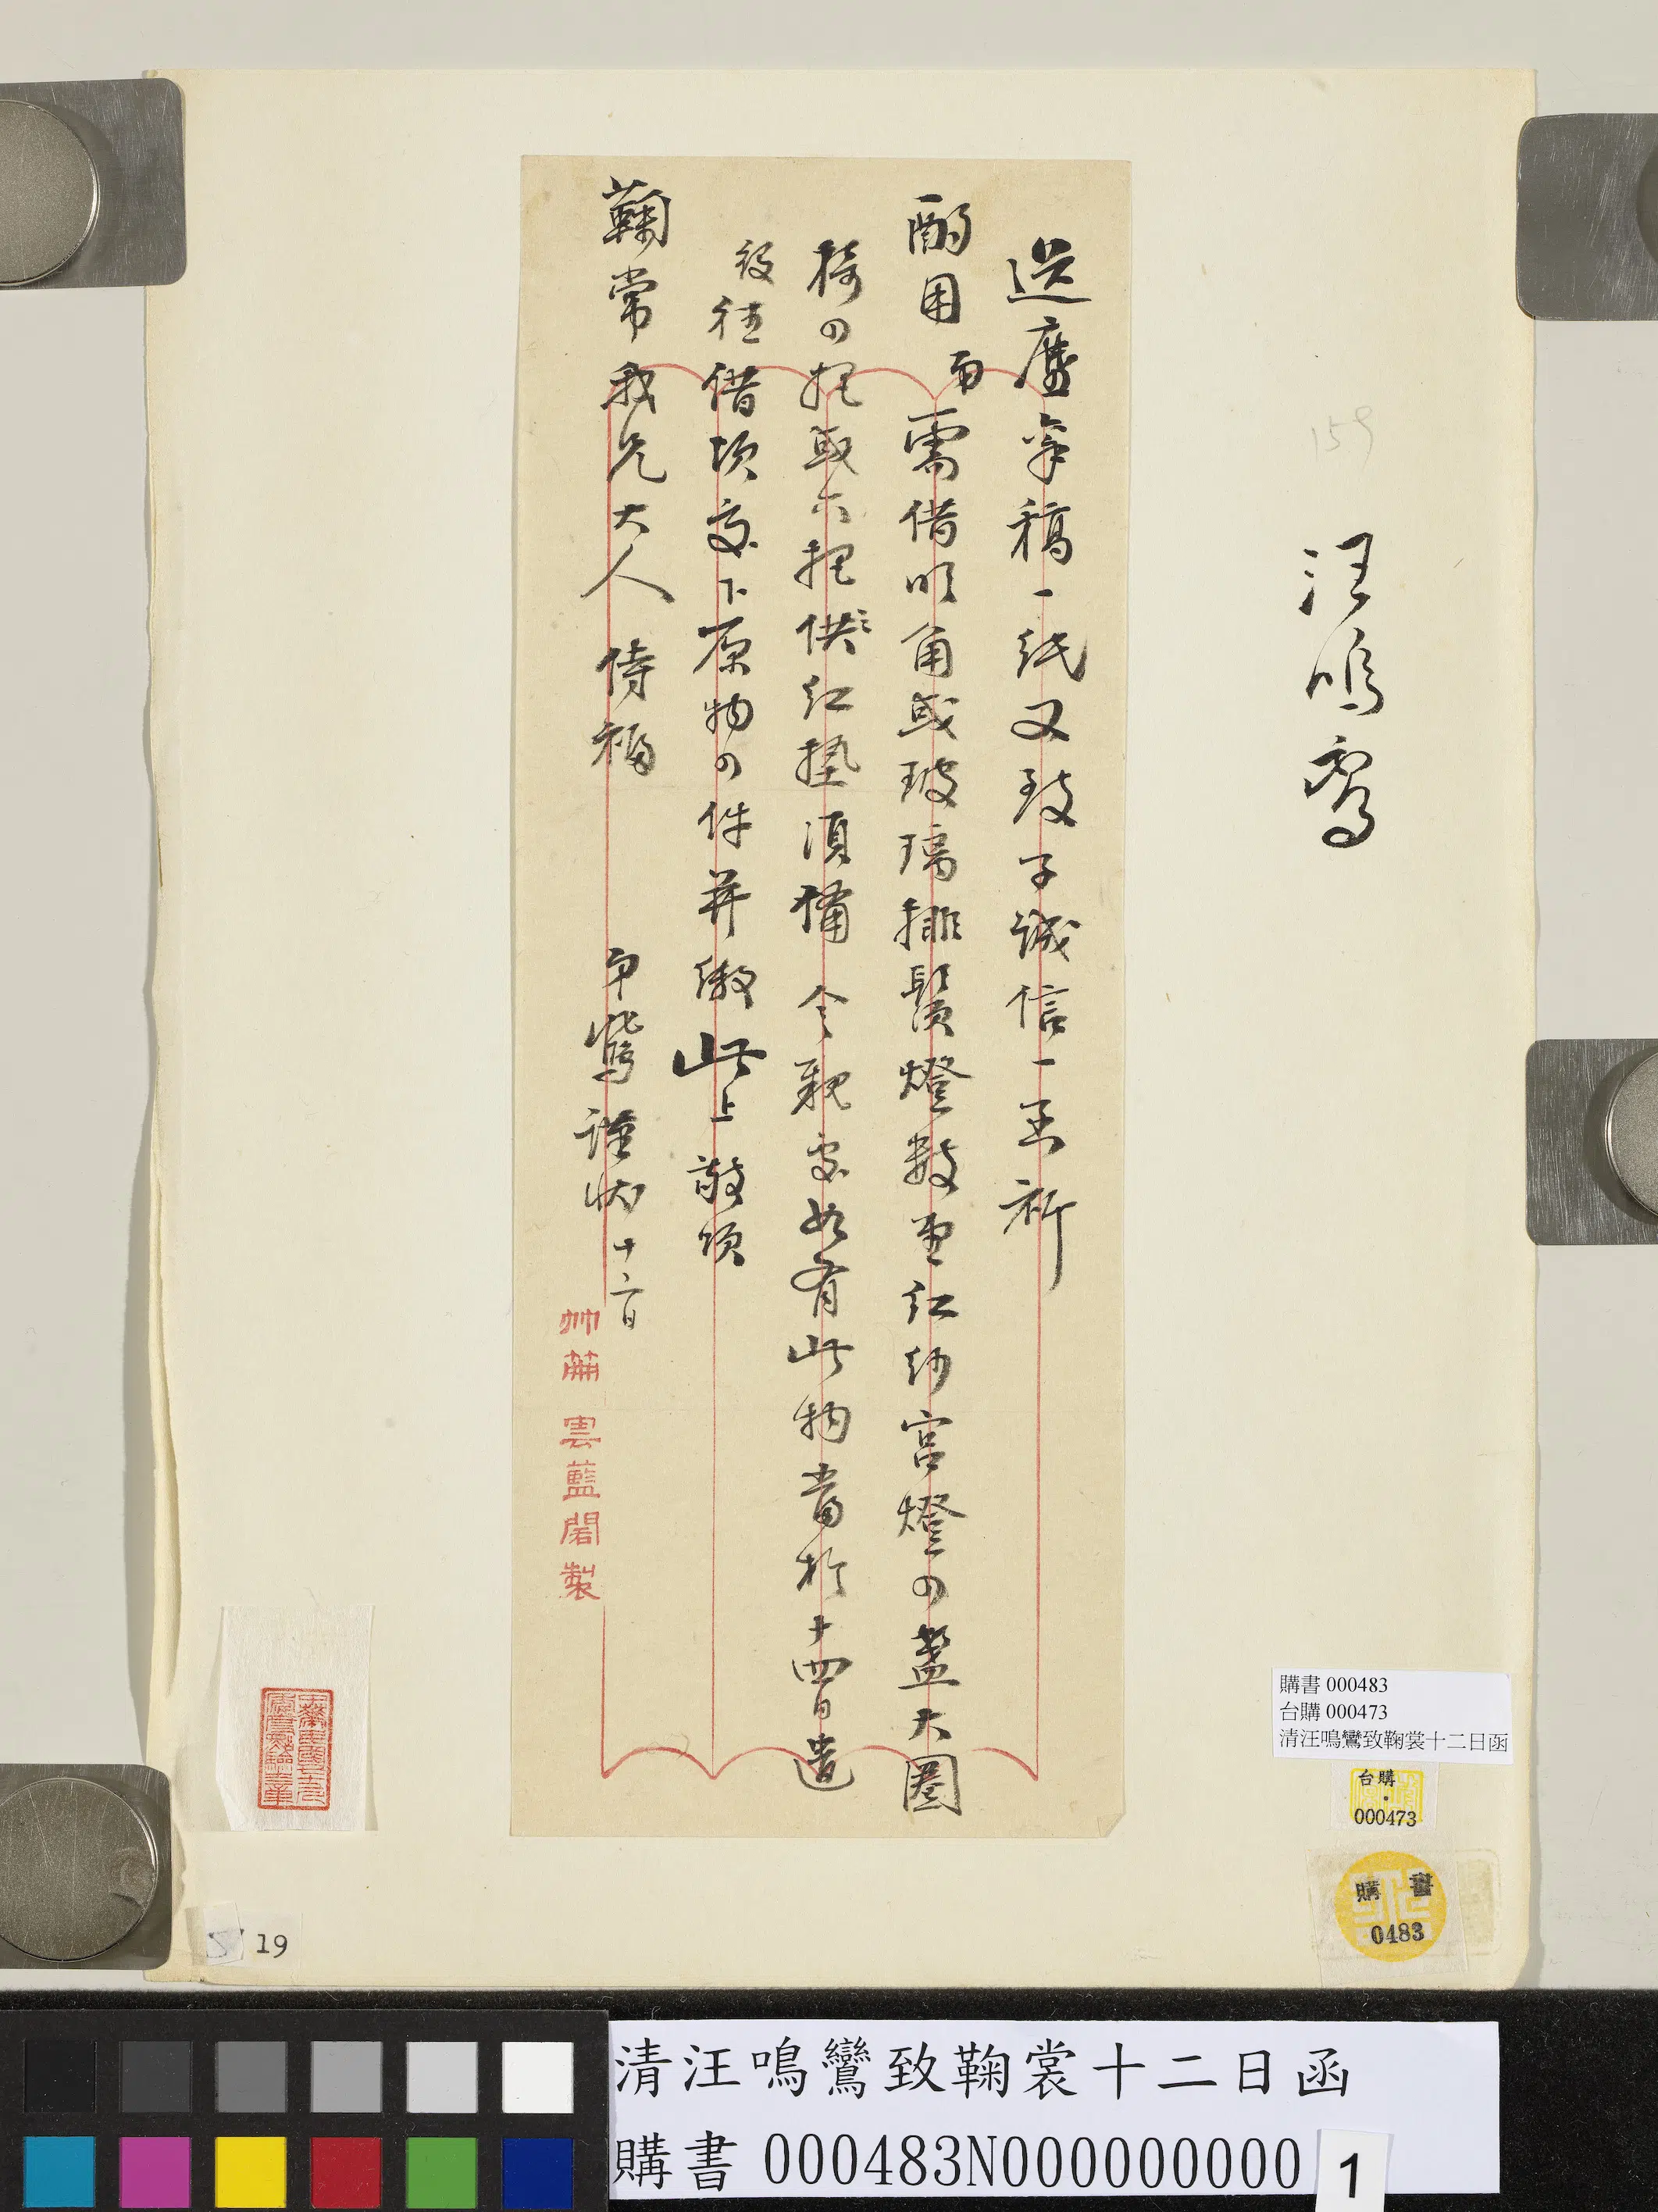 汪鳴鸞
稿一紙又致子誠信一函祈
酌用 需借明角或玻璃排鬚燈數 紅紗宮燈四盞大圈
椅四把或六把 供紅墊須備 令親處如有此物當於十四日遣
役往借頃交下原物四件并繳此上敬頌
鞠常我兄大人 侍福 弟鸞謹狀 十二日
雲藍閣製
159
購書 000483
台購 000473
清汪鳴鸞致鞠裳十二日函
台購
000473
購書
0483
19
清汪鳴鸞致鞠裳十二日函
購書 000483N000000000
1